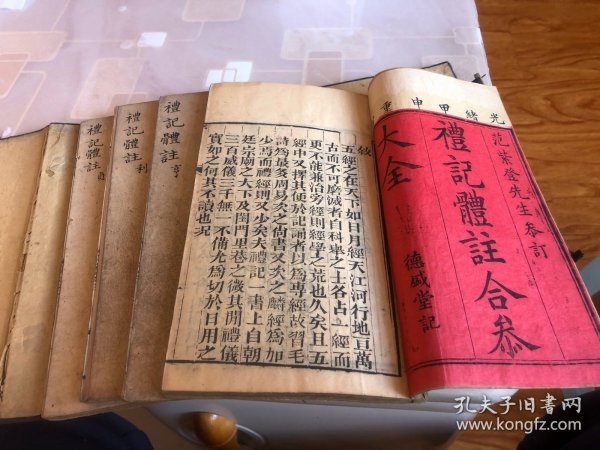 光緒甲申重
范紫登先生參訂
禮記體註合參
大全
德盛堂記
敘
五經之在天下如日月經天江河行地亘萬
古而不可磨滅者自科舉之士各占一經而
更不能兼治旁經則經學之荒也久矣且五
經中又擇其便於記誦者以為專經故習毛
詩為最多周易次之尚書又次之麟經為加
少焉而禮經則又少矣夫禮記一書上自朝
廷宗廟之大下及閨門里巷之微其間禮儀
三百威儀三千無一不備尤為切於日用之
實如之何其不讀也況
禮記體註 亨
禮記體註 利
禮記體註 貞
孔夫子旧書网
www.kongfz.com